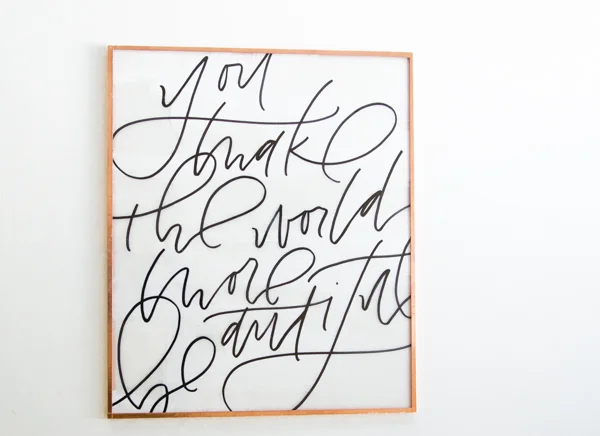 you
make
the world
more
beautiful